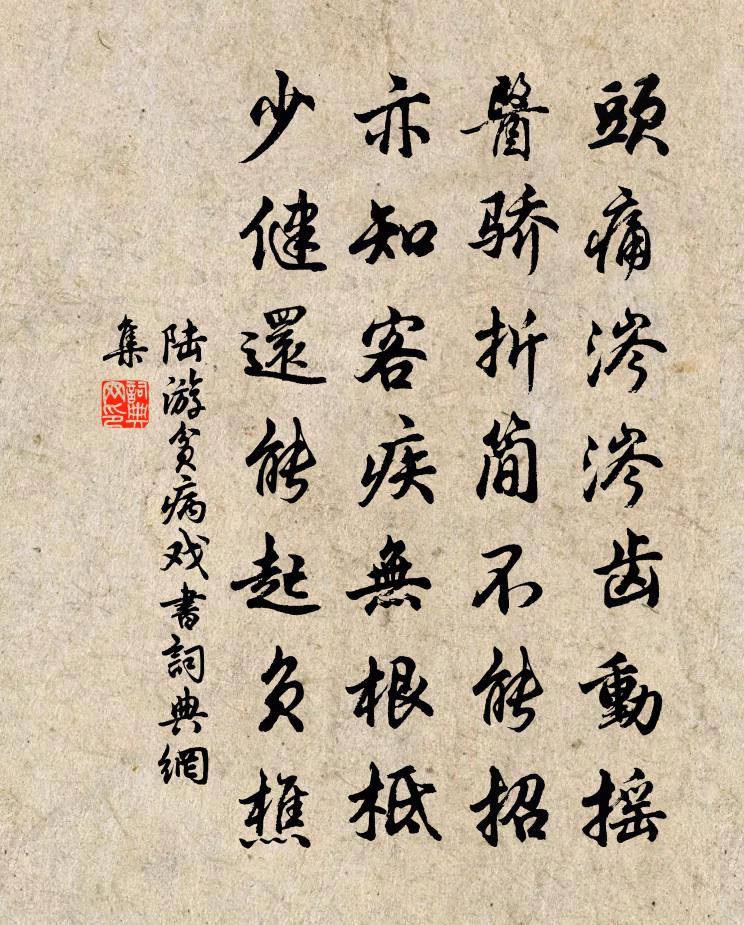 頭痛涔涔齿動摇
醫骄折简不能招
亦知客疾無根柢
少健還能起负樵
陆游贫病戏書詞典網
集
詞典
网印